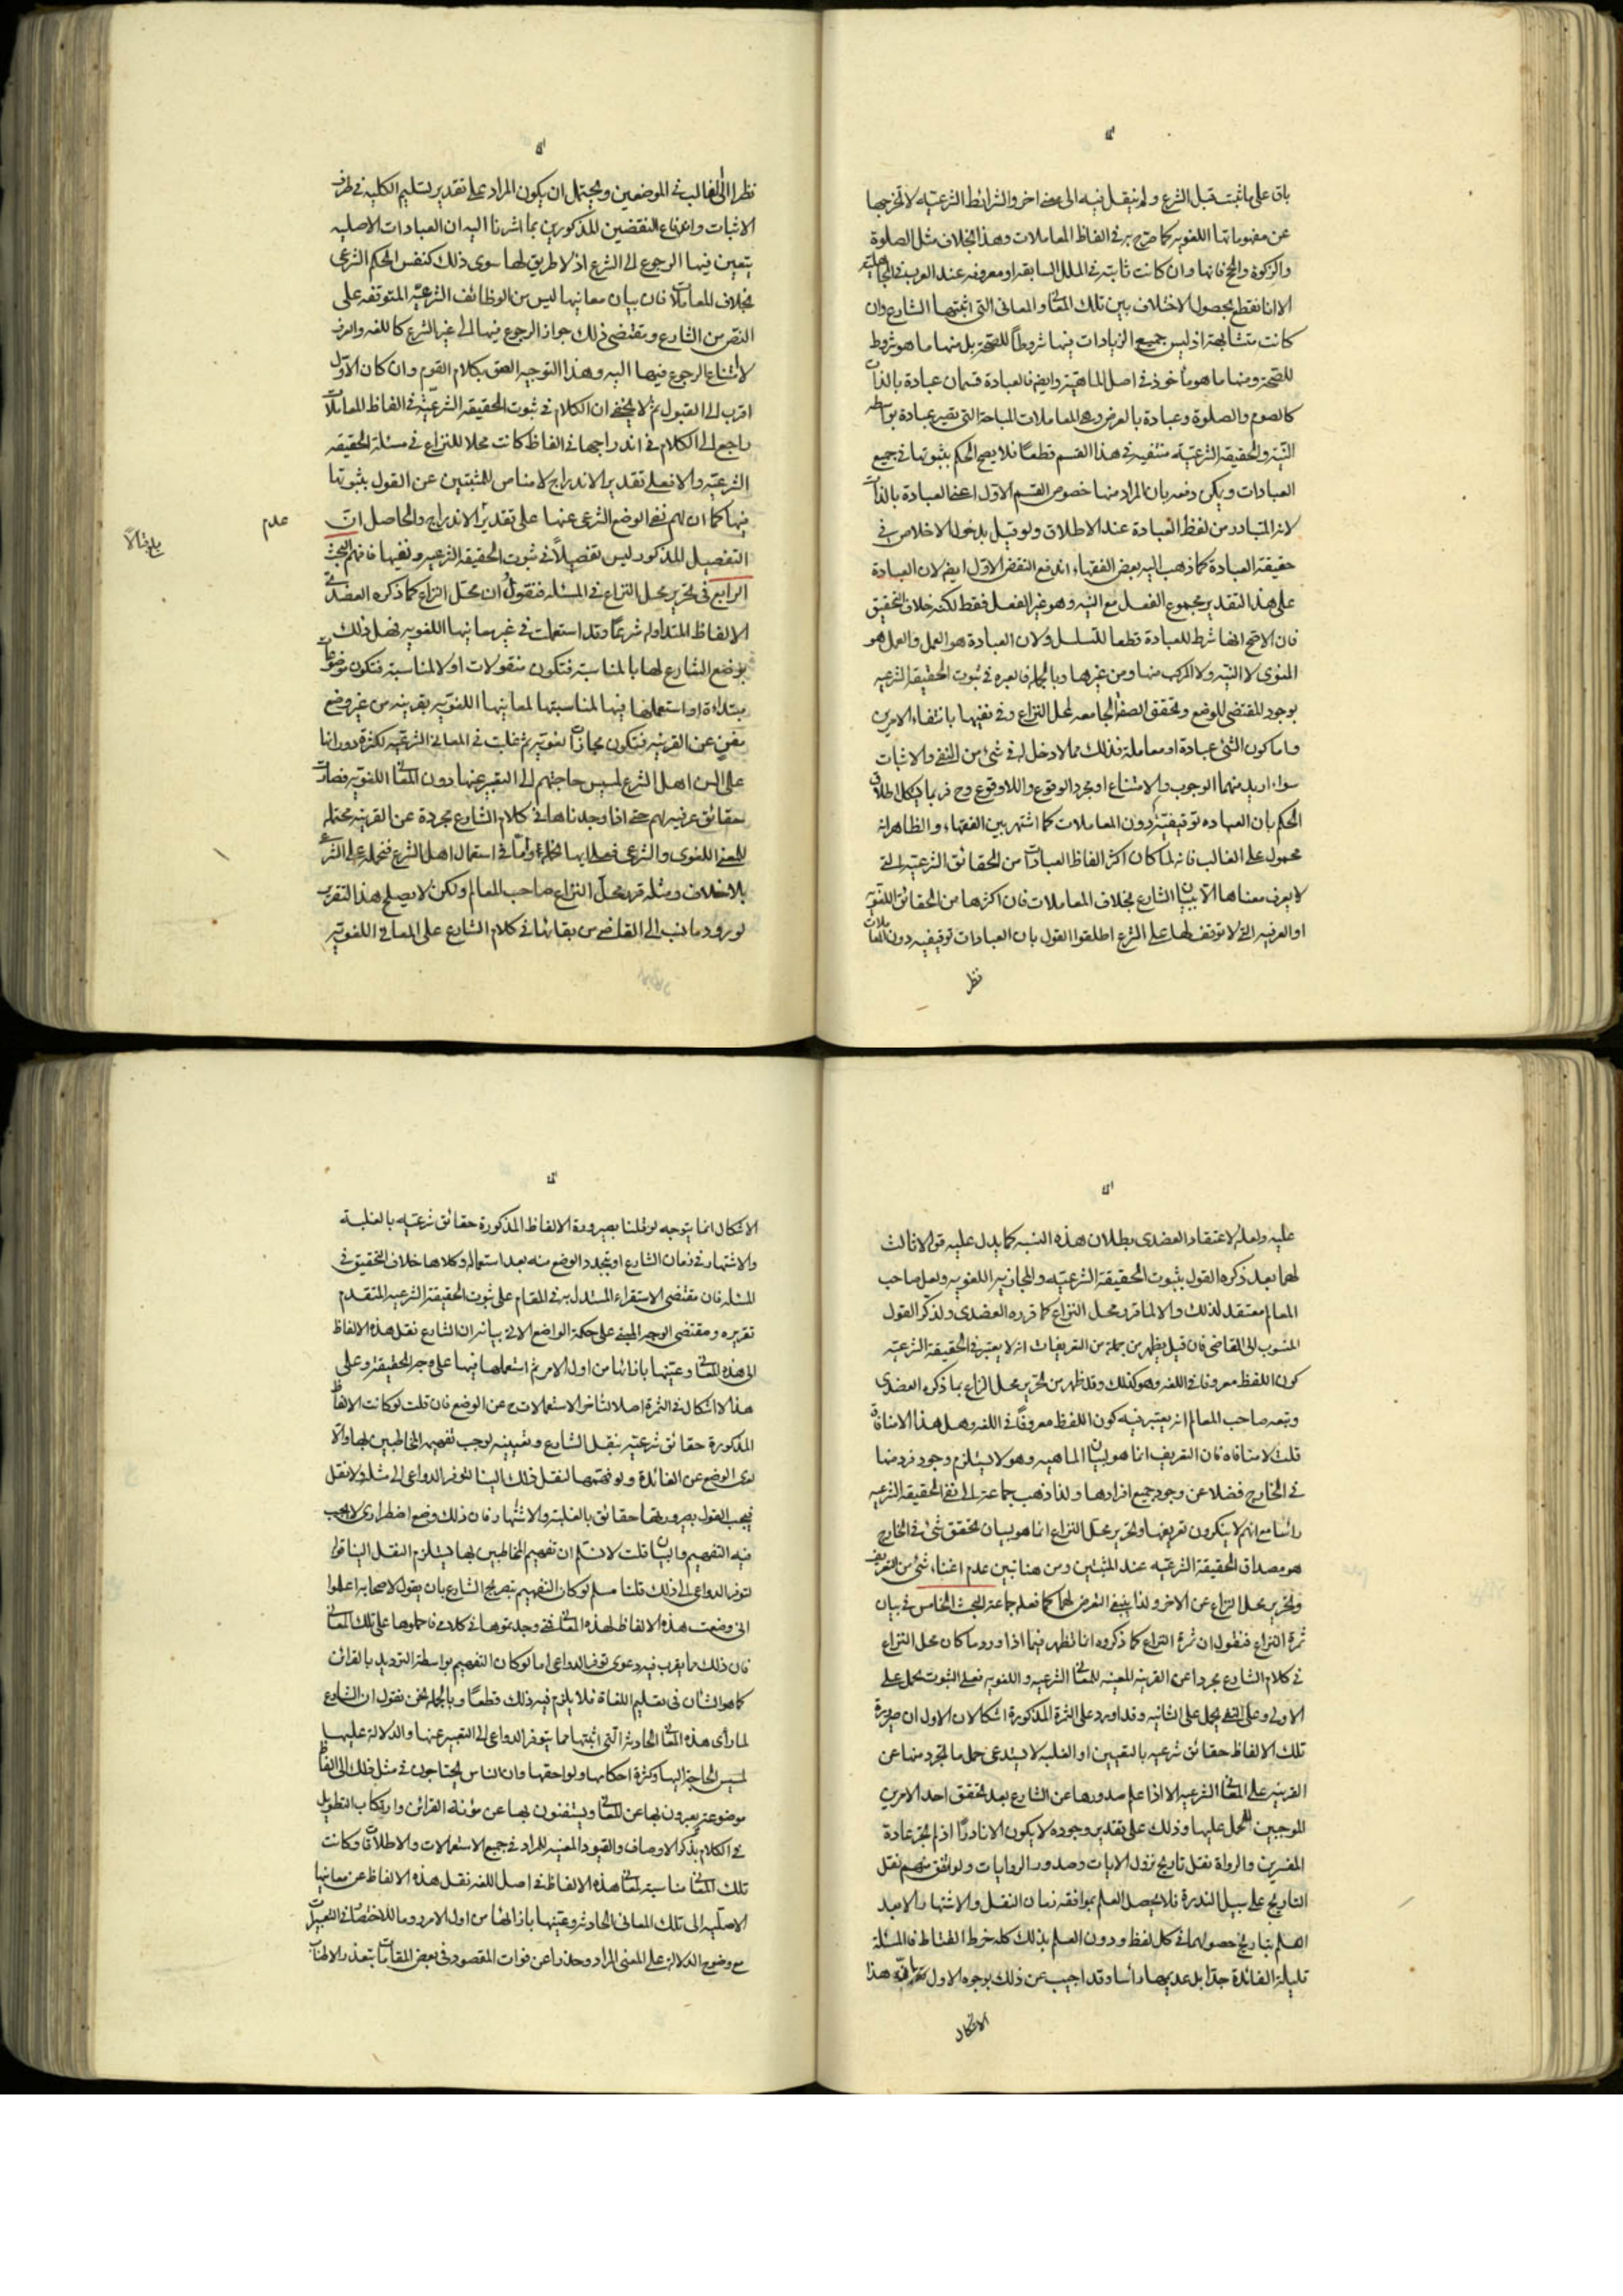 باق على ما ثبت قبل الشرع ولم ينقل فيه الى معنى اخر والشرائط الشرعيّة لا تخرجها
عن مفهوماتها اللغويه كما صرّح به في الفاظ المعاملات وهذا بخلاف مثل الصلوة
والزكوة والحج فانها وان كانت ثابته في الملل السابقه او معروفه عند العرب في الجاهلية
الا انا نقطع بحصول الاختلاف بين تلك المعاني والمعاني التي اثبتها الشارع وان
كانت متشابهة اذ ليس جميع الزيادات فيها شروطاً للصّحة بل منها ما هو شروط
للصّحة ومنها ما هو مأخوذ في اصل الماهيّة وايضا فالعبادة قسمان عبادة بالذات
كالصوم والصلوة وعبادة بالعرض وهي المعاملات المباحة التي تصير عبادة بواسطة
النّية والحقيقه الشرعيّة منتفيه في هذا القسم قطعاً فلا يصح الحكم بثبوتها في جميع
العبادات ويمكن دفعه بان المراد منها خصوص القسم الاوّل اعنى العبادة بالذات
لانه المتبادر من لفظ العبادة عند الاطلاق ولو قيل بدخول الاخلاص في
حقيقة العبادة كما ذهب اليه بعض الفقهاء اندفع النقض الاوّل ايضا لان العبادة
على هذا التقدير مجموع الفعل مع النيّه وهو غير الفعل فقط لكنه خلاف التحقيق
فان الاصّح انها شرط للعبادة قطعا للتسلسل ولان العبادة هو العمل والعمل هو
المنوى لا النيّه ولا المركب منها ومن غيرها وبالجمله فالعبره في ثبوت الحقيقة الشرعيه
بوجود المقتضى للوضع وتحقق الصفة الجامعه لمحل النزاع وفي نفيها بانتفاء الامرين
واما كون الشئ عبادة او معاملة فذلك مما لا دخل له في شئ من النفى والاثبات
سواء اريد منهما الوجوب والامتناع او مجرد الوقوع واللاوقوع وح فربما يشكل اطلاق
الحكم بان العباده توقيفيّة دون المعاملات كما اشتهر بين الفقهاء والظاهر انه
محمول على الغالب فانه لما كان اكثر الفاظ العبادات من الحقائق الشرعيّة التي
لا يعرف معناها الا ببيان الشارع بخلاف المعاملات فان اكثرها من الحقائق اللغويّة
او العرفيه التي لا توقف لها على الشرع اطلقوا القول بان العبادات توقيفيه دون المعاملات
نظر
نظرا الى الغالب في الموضعين ويحتمل ان يكون المراد على تقدير تسليم الكليه في طرف
الاثبات وامتناع النقضين المذكورين بما اشرنا اليه ان العبادات الاصليه
يتعين فيها الرجوع الى الشرع اذ لا طريق لها سوى ذلك كنفس الحكم الشرعى
بخلاف المعاملات فان بيان معانيها ليس من الوظائف الشرعيّة المتوقفه على
النصّ من الشارع ومقتضى ذلك جواز الرجوع فيها الى غير الشرع كاللغه والعرف
لا امتناع الرجوع فيها اليه وهذا التوجيه الصق بكلام القوم وان كان الاوّل
اقرب الى القبول ثم لا يخفى ان الكلام في ثبوت الحقيقة الشرعيّة في الفاظ المعاملات
راجع الى الكلام في اندراجها في الفاظ كانت محلا للنزاع في مسئلة الحقيقه
الشرعيّة والا فعلى تقدير الاندراج لا مناص للمثبتين عن القول بثبوتها
فيها كما ان لهم نفى الوضع الشرعى عنها على تقدير الاندراج والحاصل انّ
عدم
التفصيل المذكور ليس تفصيلاً في ثبوت الحقيقة الشرعيه ونفيها فافهم البحث
الرابع في تحرير محل النزاع في المسئله فنقول ان محّل النزاع كما ذكره العضدى في
الالفاظ المتداوله شرعاً وقد استعملت في غير معانيها اللغويه فهل ذلك
بوضع الشارع لها بالمناسبة فتكون منقولات اولا لمناسبة فتكون موضوعات
مبتداءة او استعملها فيها لمناسبتها لمعانيها اللغويّه بقرينه من غير وضع
مغن عن القرينه فتكون مجازات لغويّه ثم غلبت في المعانى الشرعيّه لكثرة دورانها
على السن اهل الشرع لمسيس حاجتهم الى التعبير عنها دون المعاني اللغويّه فصارت
حقائق عرفيه لهم حتى اذا وجدناها في كلام الشارع مجردة عن القرينه محتمله
للمعنى اللغوى والشرعى فعلى ايهما تحمل واما في استعمال اهل الشرع فتحمل على الشرعى
بلا خلاف ومثله قرر محلّ النزاع صاحب المعالم ولكن لا يصلح هذا التقرير
لورود ما نسب الى القاضى من بقائها في كلام الشارع على المعانى اللغويّه
عليه ولعله لاعتقاد العضدى بطلان هذه النسبه كما يدل عليه قوله لا ثالث
لهما بعد ذكره القول بثبوت الحقيقة الشرعيّه والمجازيه اللغويه ولعل صاحب
المعالم معتقد لذلك والا لما قرر محل النزاع كما قرره العضدى ولذكر القول
المنسوب الى القاضى فان قيل يظهر من جملة من التعريفات انه لا يعتبر في الحقيقة الشرعيّه
كون اللفظ معروفا في اللغه وهو كذلك وقد ظهر من تحرير محل النزاع بما ذكره العضدى
وتبعه صاحب المعالم انه يعتبر فيه كون اللفظ معروفاً في اللغه وهل هذا الا منافاة
قلت لا منافاة فان التعريف انما هو لبيان الماهيه وهو لا يستلزم وجود فرد منها
في الخارج فضلا عن وجود جميع افرادها ولذا ذهب جماعة الى نفى الحقيقة الشرعيه
رأسا مع انهم لا ينكرون تعريفها وتحرير محّل النزاع انما هو لبيان تحقق شئ في الخارج
هو مصداق الحقيقة الشرعيّه عند المثبتين ومن هنا تبين عدم اغناء شئ من التعريف
وتحرير محل النزاع عن الاخر ولذا ينبغى التعرض لهما كما فعله جماعة البحث الخامس في بيان
ثمرة النزاع فنقول ان ثمرة النزاع كما ذكروه انما تظهر فيما اذا ورد ما كان محل النزاع
في كلام الشارع مجردا عن القرينه المعينه للمعاني الشرعيه واللغويه فعلى الثبوت يحمل على
الاولى وعلى النفى يحمل على الثانيه وقد اورد على الثمرة المذكورة اشكالان الاول ان صيرورة
تلك الالفاظ حقائق شرعيه بالتعيين او الغلبه لا يستدعى حمل ما تجرد منها عن
القرينه على المعاني الشرعيه الا اذا علم صدورها عن الشارع بعد تحقق احد الامرين
الموجبين للحمل عليها وذلك على تقدير وجوده لا يكون الا نادراً اذ لم تجر عادة
المفسرين والرواة بنقل تاريخ نزول الايات وصدور الروايات ولو اتفق منهم نقل
التاريخ على سبيل الندرة فلا يحصل العلم بموافقه زمان النقل والاشتهار الا بعد
العلم بتاريخ حصولهما في كل لفظ ودون العلم بذلك كله خرط القتاد فالمسئلة
قليلة الفائدة جدّا بل عديمها رأسا وقد اجيب عن ذلك بوجوه الاول هذا
الاشكال
الاشكال انما يتوجه لو قلنا بصيرورة الالفاظ المذكورة حقائق شرعيّه بالغلبة
والاشتهار في زمان الشارع او بتجدد الوضع منه بعد استعماله وكلاهما خلاف التحقيق في
المسئله فان مقتضى الاستقراء المستدل به في المقام على ثبوت الحقيقة الشرعيه المتقدم
تقريره ومقتضى الوجه المبنى على حكمة الواضع الاتى بيانه ان الشارع نقل هذه الالفاظ
الى هذه المعاني وعيّنها بازائها من اول الامر ثم استعملها فيها على وجه الحقيقة وعلى
هذا لا اشكال في الثمرة اصلا لتأخر الاستعمالات ح عن الوضع فان قلت لو كانت الالفاظ
المذكورة حقائق شرعيّه بنقل الشارع وتعيينه لوجب تفهيمه المخاطبين لها والا
لعرى الوضع عن الفائدة ولو فهمهم لنقل ذلك الينا لتوفر الدواعى الى مثله ولا نقل
فيجب القول بصيرورتها حقائق بالغلبة والاشتهار فان ذلك وضع اضطرارى لا يجب
فيه التفهيم والبيان قلت لا نسّلم ان تفهيم المخاطبين لها يستلزم النقل الينا قوله
لتوفر الدواعى الى ذلك قلنا مسلم لو كان التفهيم بتصريح الشارع بان يقول لاصحابه اعلموا
انى وضعت هذه الالفاظ لهذه المعاني فمتى وجدتموها في كلامى فاحملوها على تلك المعاني
فان ذلك مما يقرب فيه دعوى توفر الدواعى اما لو كان التفهيم بواسطة الترديد بالقرائن
كما هو الشان في تعليم اللغاة فلا يلزم فيه ذلك قطعاً وبالجمله نحن نقول ان الشارع
لما رأى هذه المعاني الحادثه التي اثبتها مما يتوفر الدواعى الى التعبير عنها والدلالة عليها
لمسيس الحاجة اليها وكثرة احكامها ولواحقها وان الناس يحتاجون في مثل ذلك الى الفاظ
موضوعة يعبرون بها عن المعاني ويستغنون بها عن مؤنة القرائن وارتكاب التطويل
في الكلام بذكر الاوصاف والقيود المعينه للمراد في جميع الاستعمالات والاطلاقات وكانت
تلك المعاني مناسبة لمعاني هذه الالفاظ في اصل اللغه نقل هذه الالفاظ عن معانيها
الاصليّه الى تلك المعانى الحادثه وعيّنها بازائها من اول الامر روما للاختصار في التعبيرات
مع وضوح الدلالة على المعنى المراد وحذرا عن فوات المقصود في بعض المقامات بتعذر